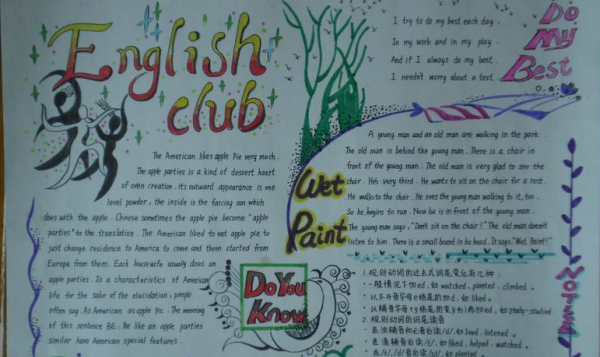 English
club
The American likes apple Pie very much.
The apple parties is a kind of dessert haert
of oven creation, its outward appearance is one
level powder, the inside is the farcing sun which
does with the apple. Chinese sometimes the apple pie become "apple
parties" to the translation. The American liked to eat apple pie to
just change residence to America to come and then started from
Europe from them. Each housewife usually does an
apple parties. Is a characteristics of American
life for the sake of the elucidation, people
often say: As American as apple pie. The meaning
of this sentence BE: Be like an apple parties
similar have American special features.
Do You
Know
I try to do my best each day.
In my work and in my play.
And if I always do my best.
I needn't worry about a test.
Do
My
Best
Wet
Paint
A young man and an old man are walking in the park.
The old man is behind the young man. There is a chair in
front of the young man. The old man is very glad to see the
chair. He's very tired. He wants to sit on the chair for a rest.
He walks to the chair. He sees the young man walking to it, too.
So he begins to run. Now he is in front of the young man.
The young man says, "Don't sit on the chair!" The old man doesn't
listen to him. There is a small board in his hand. It says, "Wet Paint!"
1. 规则动词的过去式词尾变化有几种:
·一般情况下加ed, 如 watched, planted, climbed.
·以不发音字母e结尾的加d, 如 liked.
·以辅音字母+y结尾的变y为i再加ed, 如 study-studied.
2. 规则动词的词尾读音
·在浊辅音和元音后读/d/, 如 lived, listened.
·在清辅音后读/t/, 如 liked, helped, watched.
·在/t/,/d/音后读/id/, 如 planted.